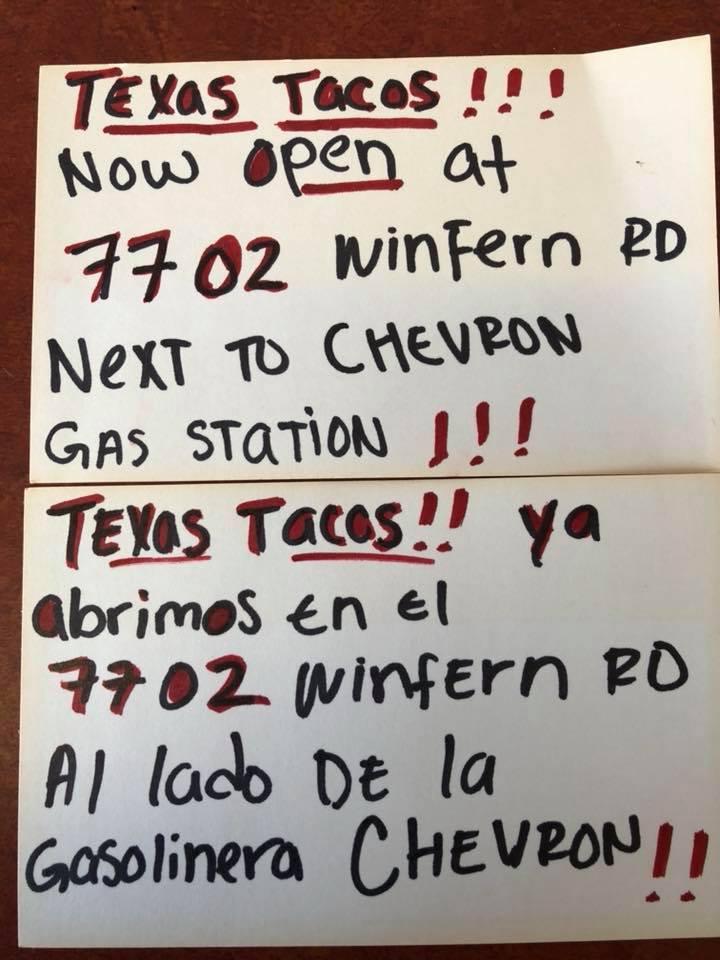 TEXas Tacos !!!
NOW open at
7702 WinFern RD
NeXT TO CHEVRON
GAS STaTiON !!!
TEXas Tacos!! ya
abrimos En El
7702 WinfErn RD
Al lado DE la
Gasolinera CHEVRON!!